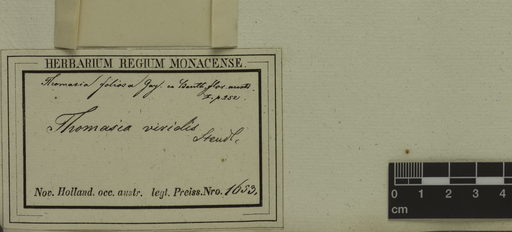 HERBARIUM REGIUM MONACENSE.
Thomasia foliosa Gay. ex Benth. flor. austr.
I. p. 252.
Thomasia viridis
Steudl.
Nov. Holland. occ. austr. legl. Preiss. Nro. 1653.
0 1 2 3 4
cm